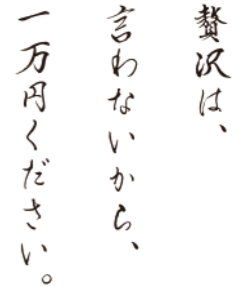 贅沢は、
言わないから、
一万円ください。